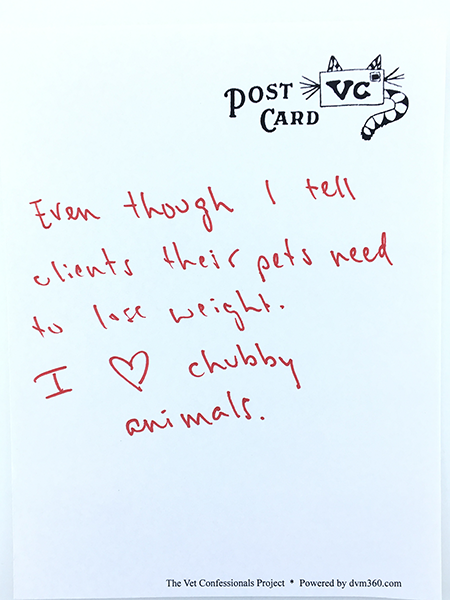 POST CARD
VC
Even though I tell
clients their pets need
to lose weight.
I ♡ chubby
animals.
The Vet Confessionals Project * Powered by dvm360.com